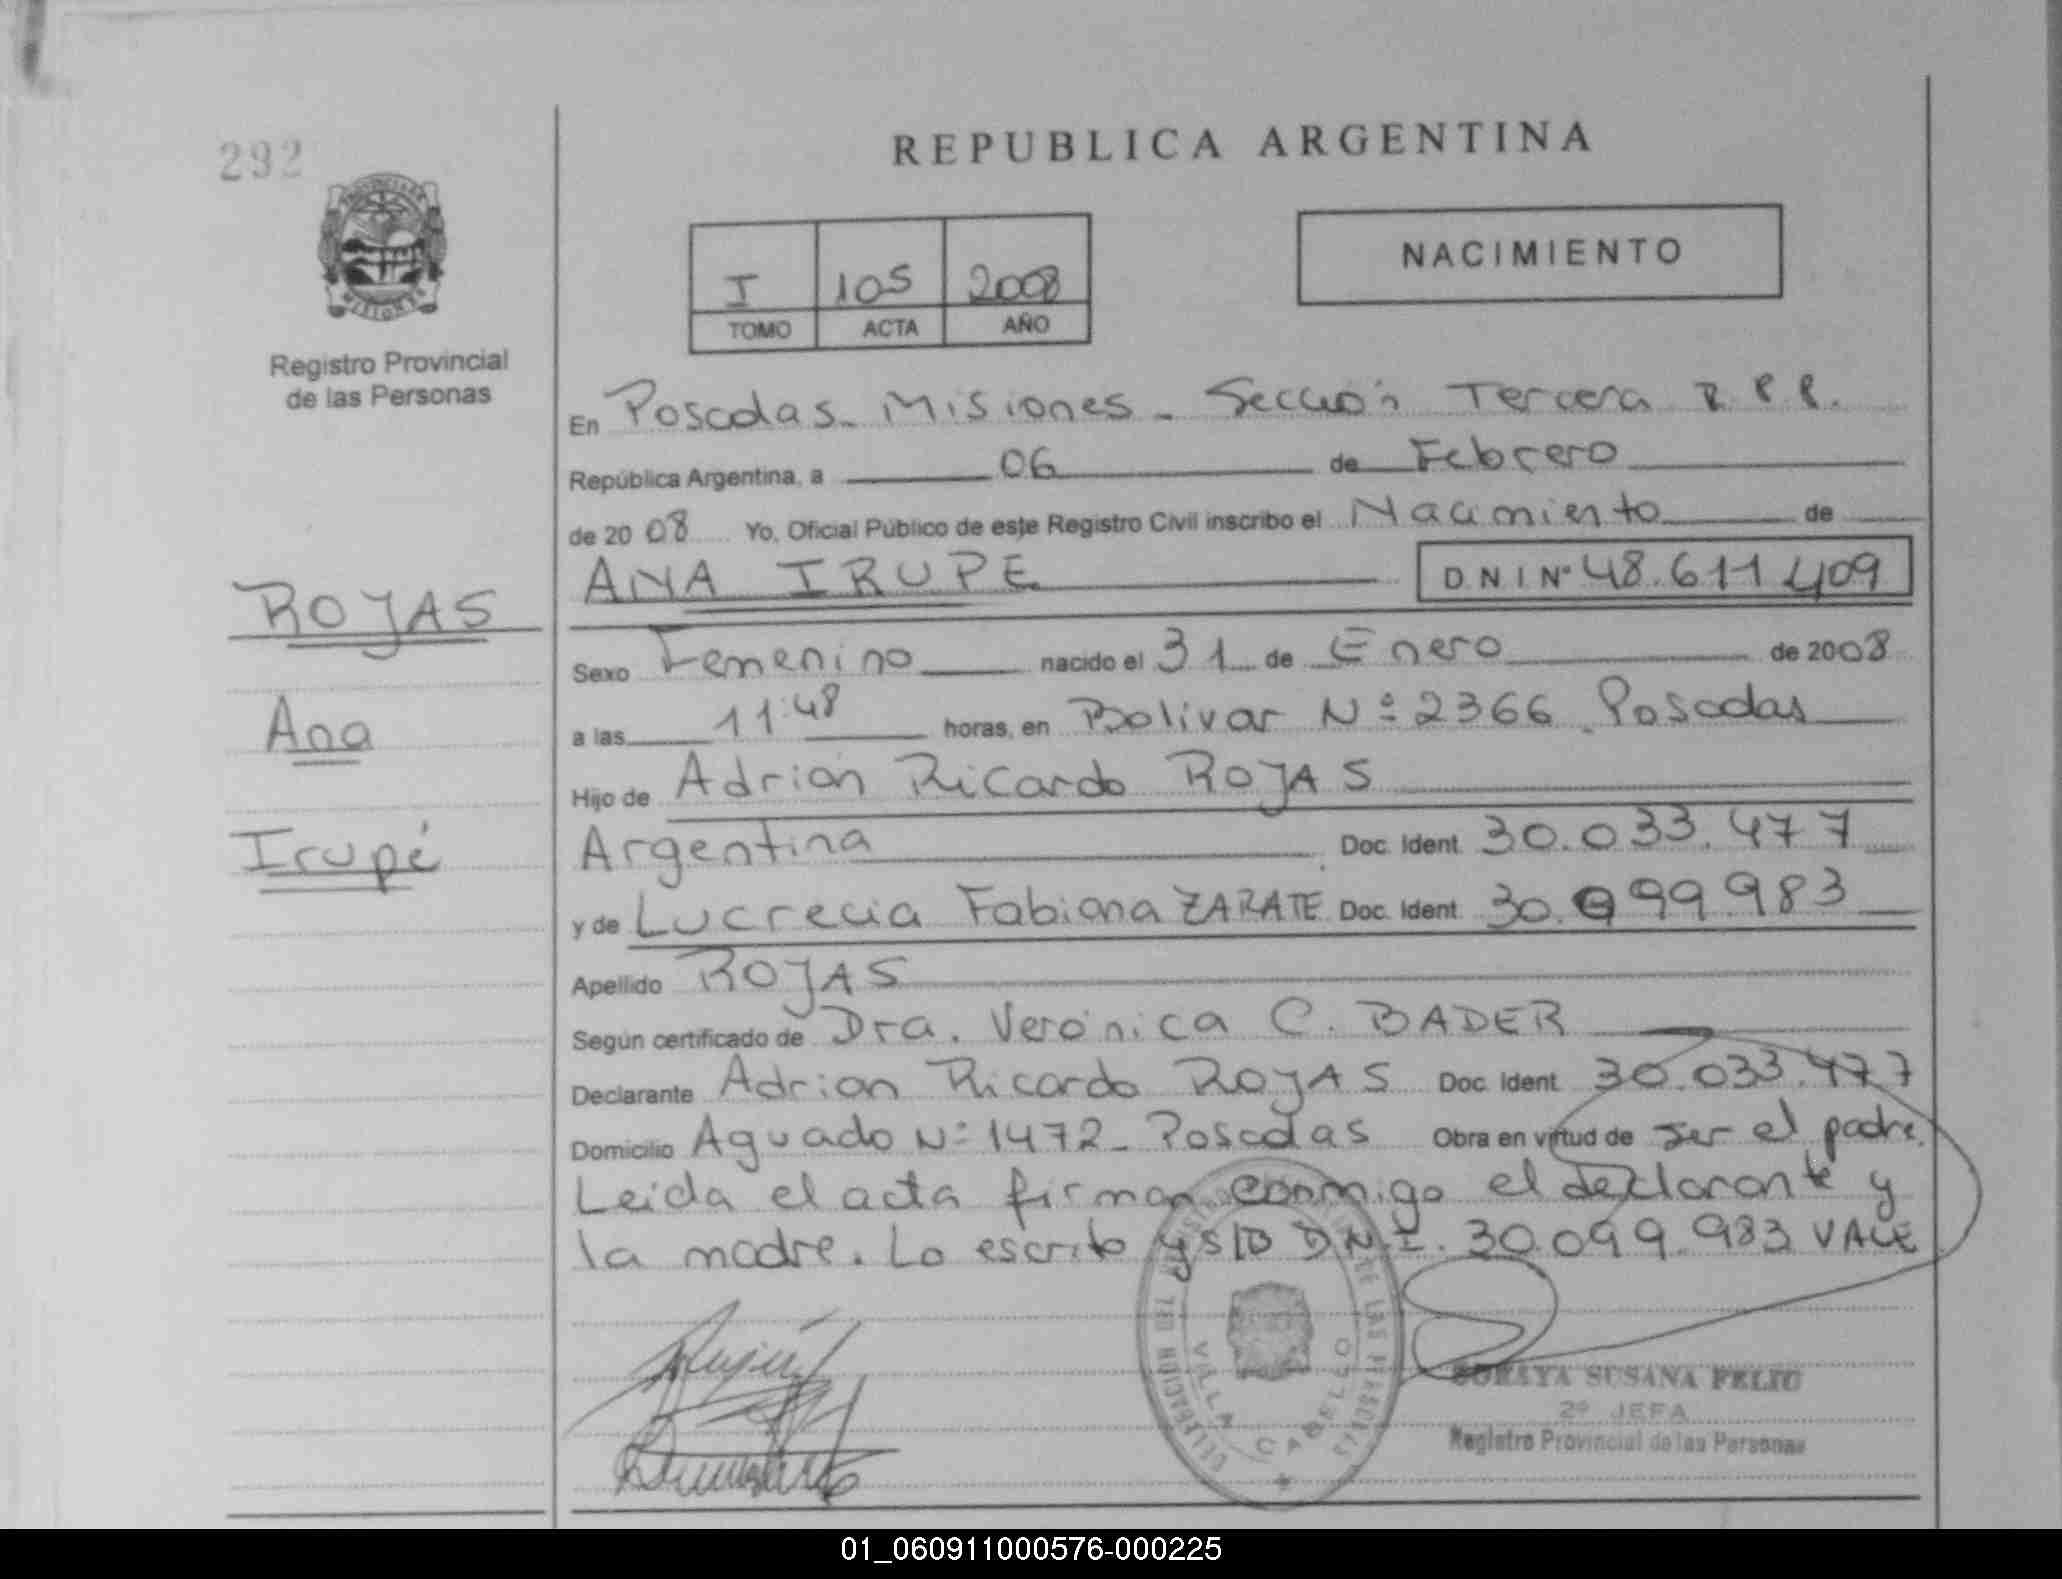 292
REPUBLICA ARGENTINA
NACIMIENTO
I 105 2008
TOMO ACTA AÑO
Registro Provincial
de las Personas
En Posadas - Misiones - Sección Tercera R.P.P.
República Argentina, a 06 de Febrero
de 2008 Yo, Oficial Público de este Registro Civil inscribo el Nacimiento de
ANA IRUPE D N I Nº 48.611.409
ROJAS
Ana
Irupé
Sexo Femenino nacido el 31 de Enero de 2008
a las 11:48 horas, en Bolivar Nº 2366 Posadas
Hijo de Adrián Ricardo ROJAS
Argentina Doc. Ident. 30.033.477
y de Lucrecia Fabiana ZARATE Doc. Ident. 30.099.983
Apellido ROJAS
Según certificado de Dra. Verónica C. BADER
Declarante Adrian Ricardo ROJAS Doc. Ident. 30.033.477
Domicilio Aguado Nº 1472 - Posadas Obra en virtud de ser el padre.
Leida el acta firman conmigo el declarante y
la madre. Lo escrito y S/B D.N.I. 30.099.983 VALE
DELEGACION DEL REGISTRO DE LAS PERSONAS
VILLA CABELLO
SORAYA SUSANA FELIU
2º JEFA
Registro Provincial de las Personas
01_060911000576-000225